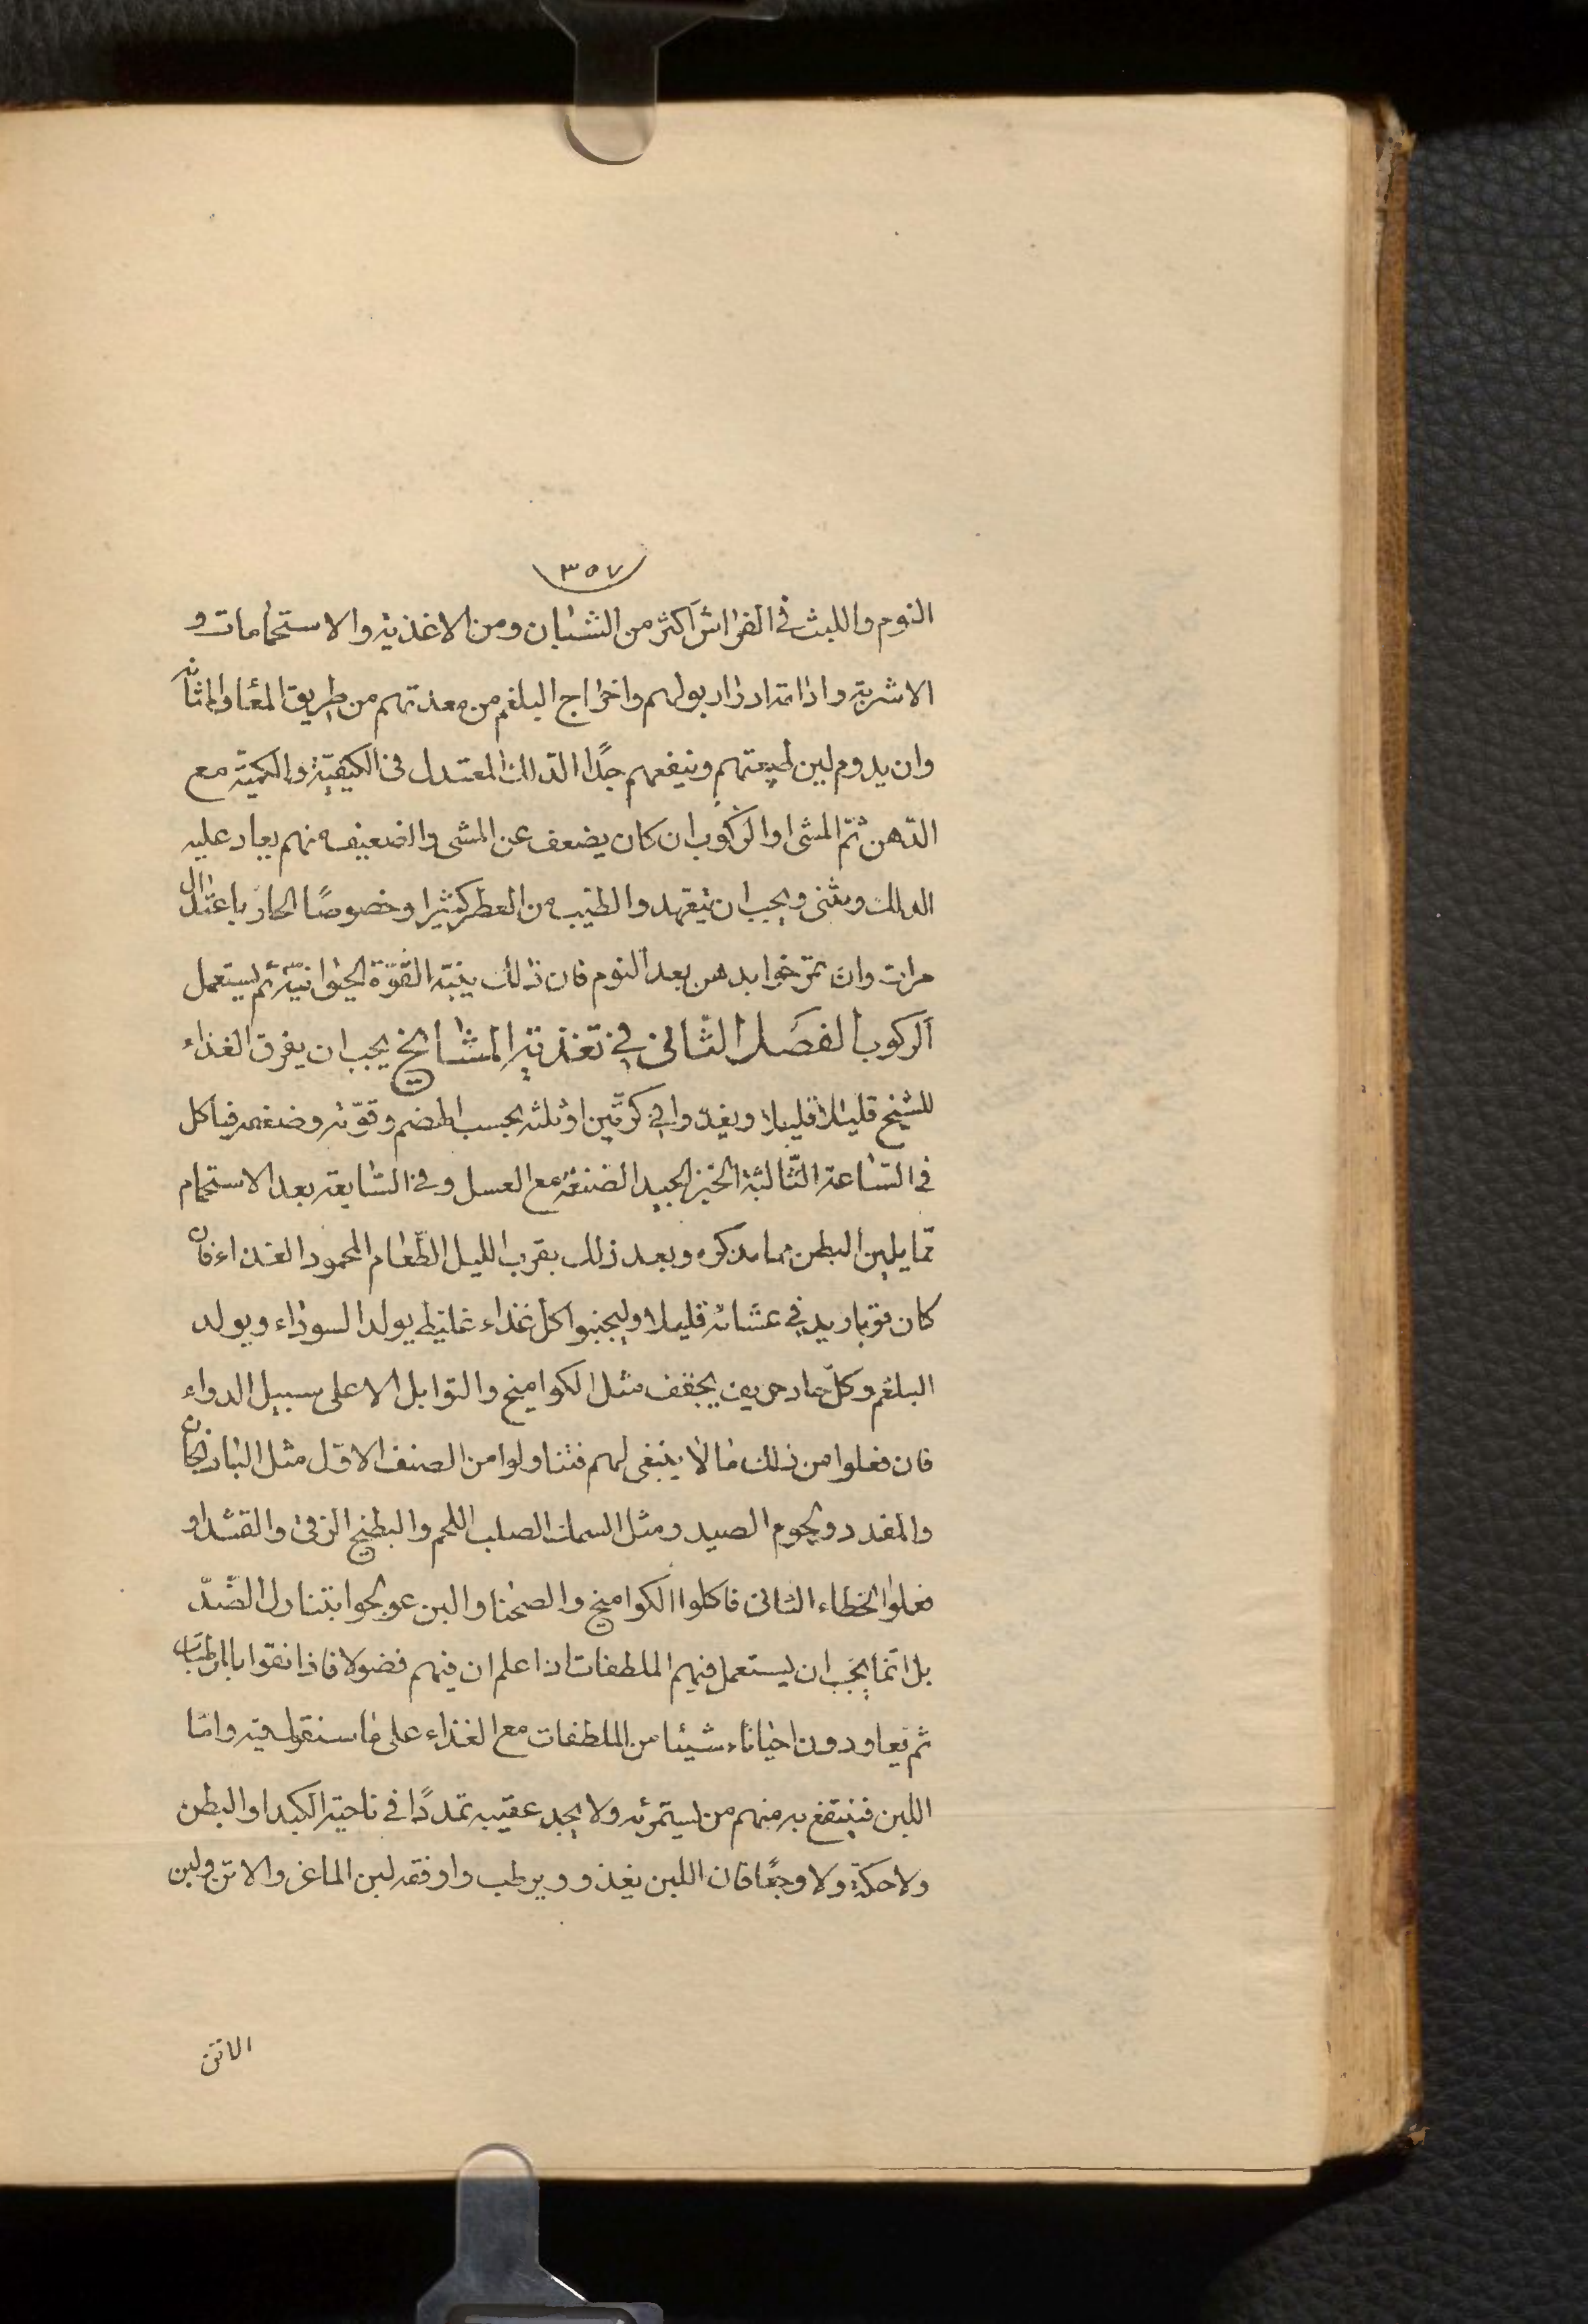 ٣٥٧
النوم واللبث فى الفراش اكثر من الشبان ومن الاغذية والاستحمامات و
الاشربة واذا امتد ادرار بولهم واخراج البلغم من معدتهم من طريق المعا والمثانه
وان يدوم لين طبيعتهم وينفعهم جدًا الدلك المعتدل فى الكيفيّة والكميّة مع
الدّهن ثمّ المشى او الركوب ان كان يضعف عن المشى والضعيف منهم يعاد عليه
الدلك ويثنى ويجب ان يتعهدوا الطيب من العطر كثيرا وخصوصًا الحار باعتدال
مرات وان تمرّخوا بدهن بعد النوم فان ذلك ينبّه القوّة الحيوانيّة ثم يستعمل
الركوب الفصل الثّانى فى تغذية المشايخ يجب ان يفرق الغذاء
للشيخ قليلا قليلا ويغذوا فى كرّتين او ثلثه بحسب الهضم وقوّته وضعفه فياكل
فى السّاعة الثّالثة الخبز الجيد الصنعة مع العسل وفى السّابعة بعد الاستحمام
ممّا يلين البطن مما نذكره وبعد ذلك بقرب الليل الطّعام المحمود الغذاء فان
كان قويا زيد فى عشائه قليلا وليجنبوا كل غذاء غليظ يولد السوداء ويولد
البلغم وكل حاد حريف يجفف مثل الكواميخ والتوابل الا على سبيل الدواء
فان فعلوا من ذلك ما لا ينبغى لهم فتناولوا من الصنف الاول مثل الباذنجان
والمقدد ولحوم الصيد ومثل السمك الصلب اللحم والبطيخ الرقى والقثد او
فعلوا الخطاء الثانى فاكلوا الكواميخ والصحنا والبن عولجوا بتناول الضّدّ
بل انما يجب ان يستعمل فيهم الملطفات اذا علم ان فيهم فضولا فاذا نقوا بالمرطبات
ثم يعاودون احيانا شيئا من الملطفات مع الغذاء على ما سنقوله فيه وامّا
اللبن فينتفع به منهم من يستمرئه ولا يجد عقيبه تمددًا فى ناحية الكبد او البطن
ولا حكة ولا وجعًا فان اللبن يغذو ويرطب واوفقه لبن الماعز والاتن ولبن
الاتن